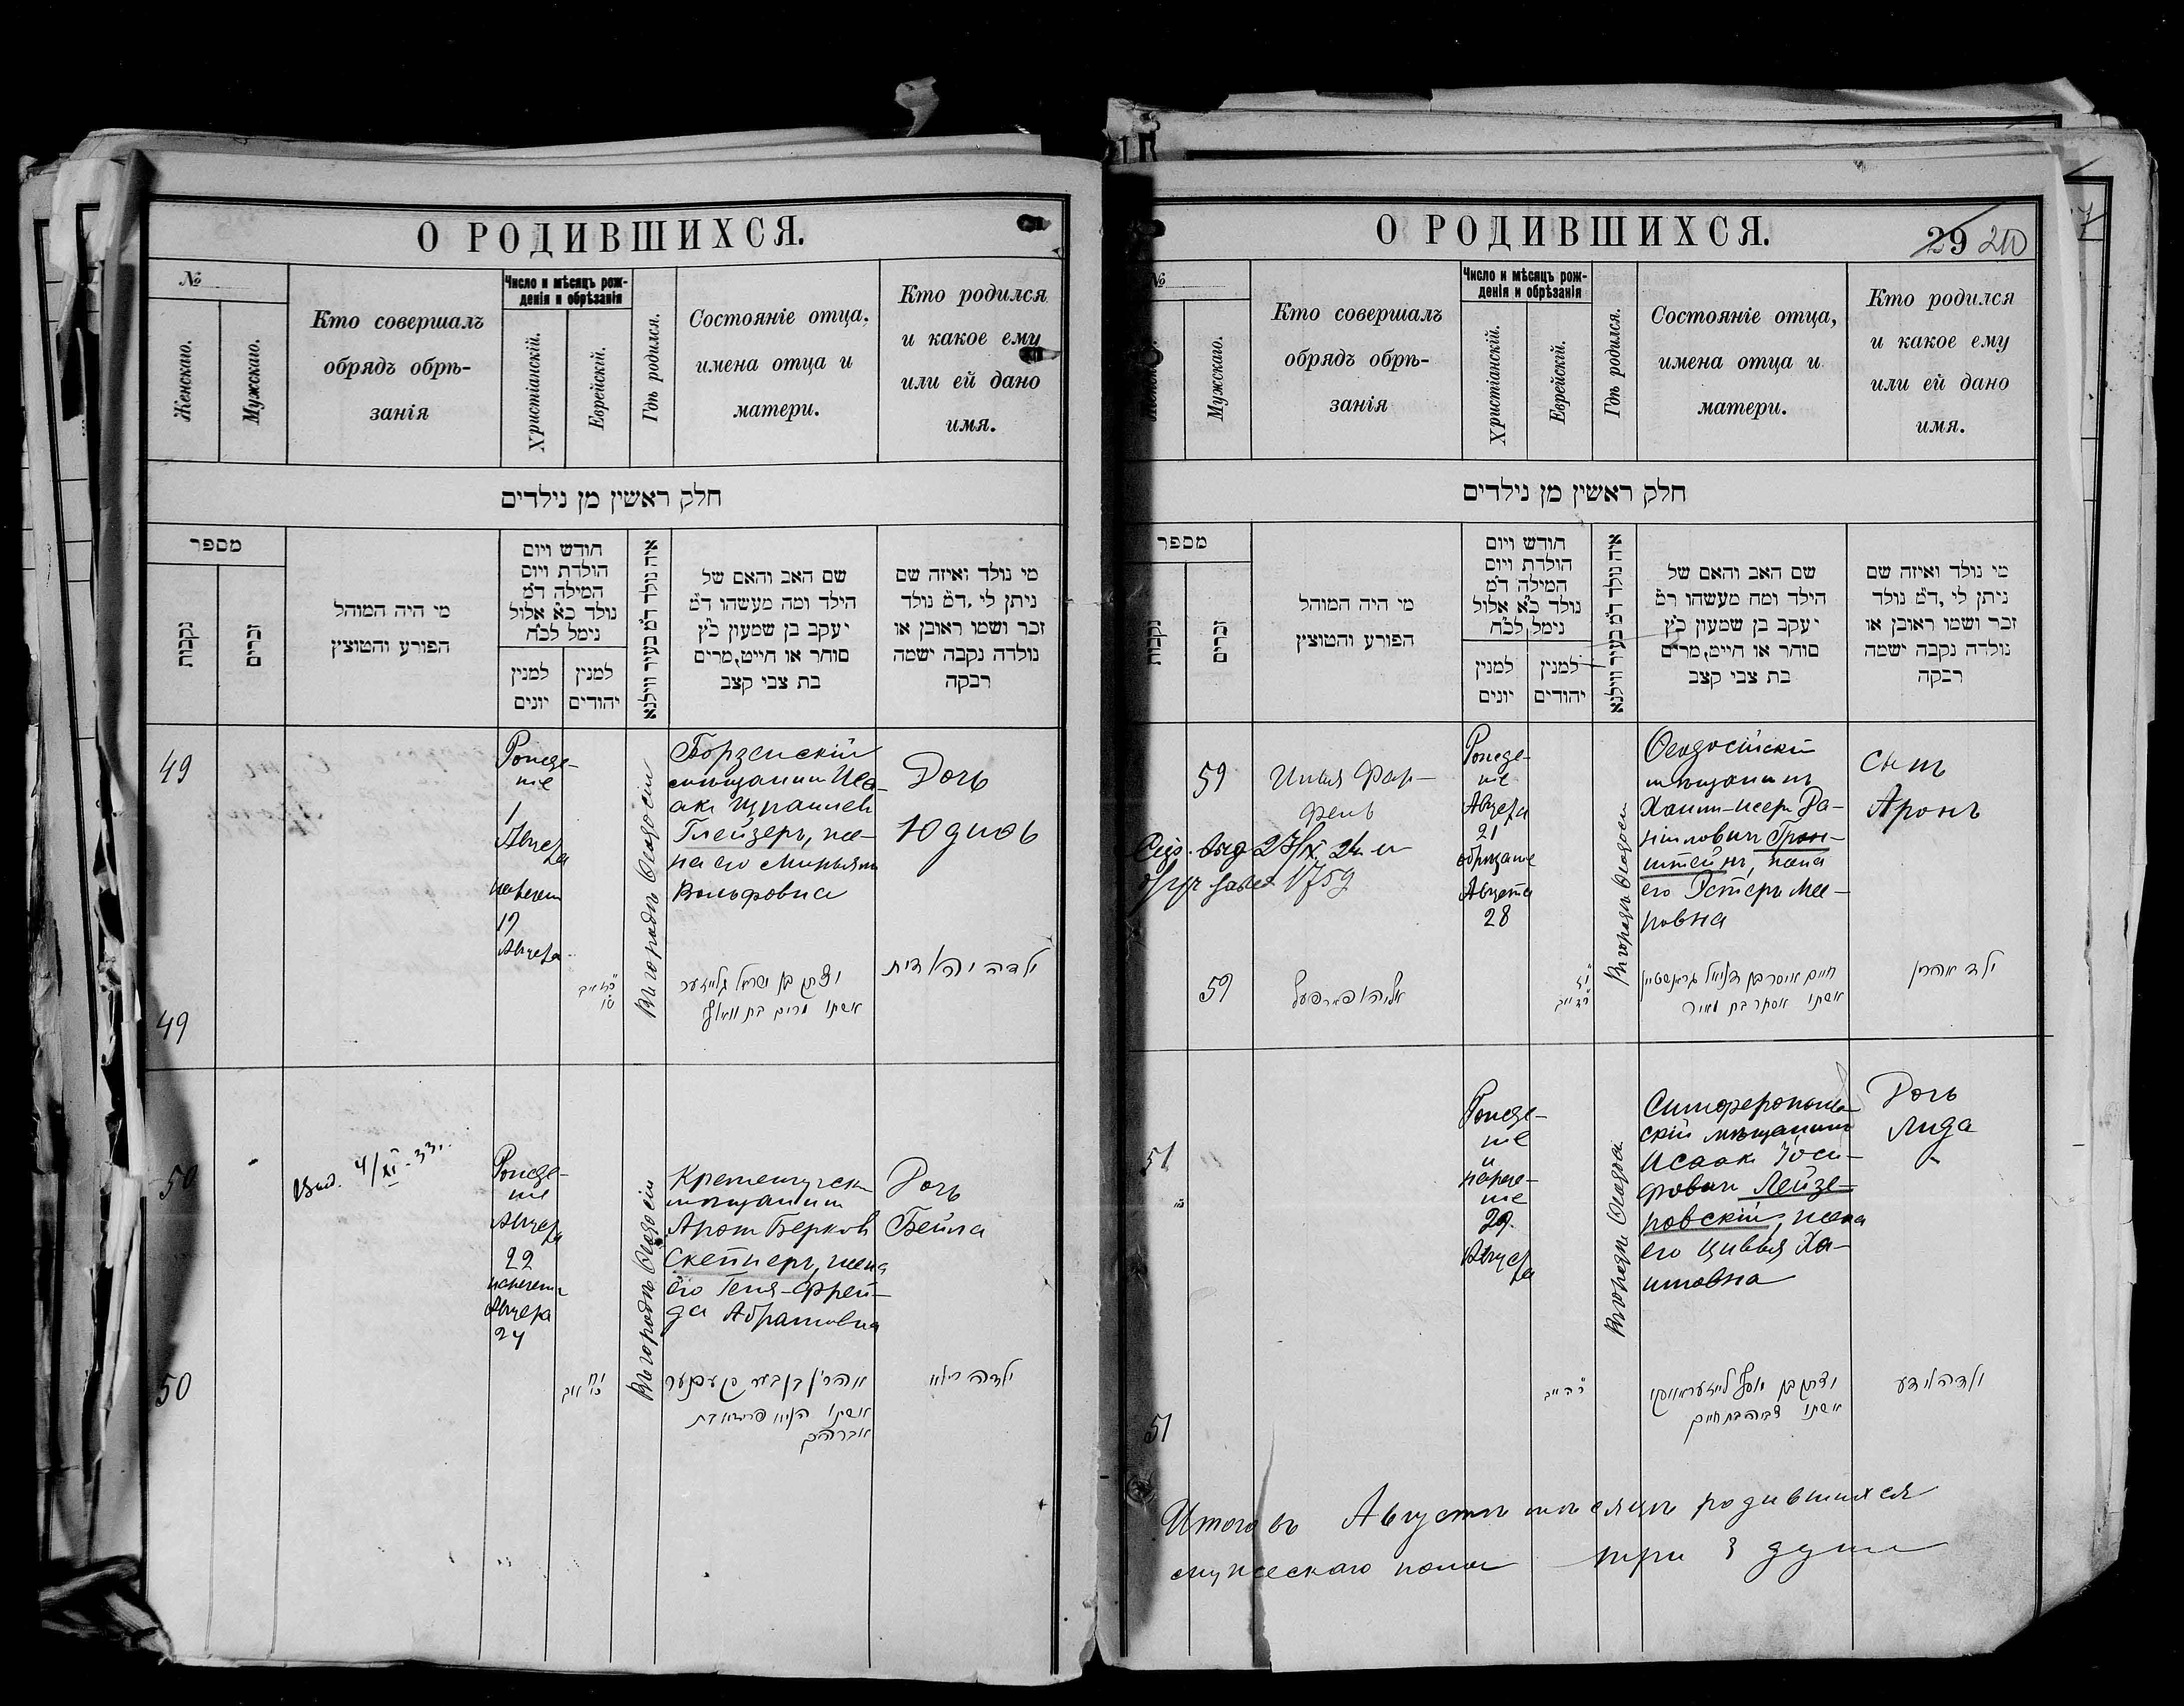 О РОДИВШИХСЯ.
№
Женскаго.
Мужскаго.
Кто совершалъ
обрядъ обрѣ-
занія
Число и мѣсяцъ рож-
денія и обрѣзанія
Христіанскій.
Еврейскій.
Гдѣ родился.
Состояніе отца,
имена отца и
матери.
Кто родился
и какое ему
или ей дано
имя.
חלק ראשין מן נילדים
מספר
נקבות
זכרים
מי היה המוהל
הפורע והטוצין
חודש ויום
הולדת ויום
המילה דמ
נולד כא אלול
נימל לכח
למנין
יונים
למנין
יהודים
איה נולד דמ בעיר ווילנא
שם האב והאם של
הילד ומה מעשהו דמ
יעקב בן שמעון כץ
סוחר או חייט,מרים
בת צבי קצב
מי נולד ואיזה שם
ניתן לי, דמ נולד
זכר ושמו ראובן או
נולדה נקבה ישמה
רבקה
49
Рожде-
ніе
1
Августа
наречен
19
Августа
Въ городѣ Ѳеодосіи
Борзенскій
мѣщанинъ Иса-
акъ Израилев
Глейзеръ, же-
на его Мирьямъ
Вольфовна
Дочь
Юдифь
49
יצחק בן ישראל גלייזער
אשתו מרים בת וואלף
ילדה יהודית
50
Выд. 4/XI-33
Рожде-
ніе
Августа
22
наречен
Августа
24
Въ городѣ Ѳеодосіи
Кременчугск
мѣщанинъ
Аронъ Берков
Скепнеръ, жена
его Геня-Фрей-
да Абрамовна
Дочь
Бейла
50
אשתו הניא פריידא בת
אברהם
ילדה בילא
О РОДИВШИХСЯ.
29 20
№
Женскаго.
Мужскаго.
Кто совершалъ
обрядъ обрѣ-
занія
Число и мѣсяцъ рож-
денія и обрѣзанія
Христіанскій.
Еврейскій.
Гдѣ родился.
Состояніе отца,
имена отца и
матери.
Кто родился
и какое ему
или ей дано
имя.
חלק ראשין מן נילדים
מספר
נקבות
זכרים
מי היה המוהל
הפורע והטוצין
חודש ויום
הולדת ויום
המילה דמ
נולד כא אלול
נימל לכח
למנין
יונים
למנין
יהודים
איה נולד דמ בעיר ווילנא
שם האב והאם של
הילד ומה מעשהו דמ
יעקב בן שמעון כץ
סוחר או חייט,מרים
בת צבי קצב
מי נולד ואיזה שם
ניתן לי, דמ נולד
זכר ושמו ראובן או
נולדה נקבה ישמה
רבקה
59
Илья Фар-
фель
выд 27/IX 24
1759
Рожде-
ніе
Августа
21
обрѣзаніе
Августа
28
Въ городѣ Ѳеодосіи
Ѳеодосійскій
мѣщанинъ
Хаимъ-Исеръ Да-
ніиловичъ Грин-
штейнъ, жена
его Эстеръ Ме-
ровна
Сынъ
Аронъ
59
אליהו פארפעל
חיים איסר בן דניאל גרינשטיין
אשתו אסתר בת מאיר
ילד אהרן
51
Рожде-
ніе
и
нарече-
ніе
29.
Августа
Въ городѣ Ѳеодосіи
Симферополь-
скій мѣщанинъ
Исаакъ Іоси-
фович Лейзе-
ровскій, жена
его Цивья Ха-
имовна
Дочь
Лида
51
יצחק בן יוסף לייזעראווסקי
אשתו צביה בת חיים
ילדה לידע
Итого въ Августѣ мѣсяцѣ родившихся
мужескаго пола три 3 души